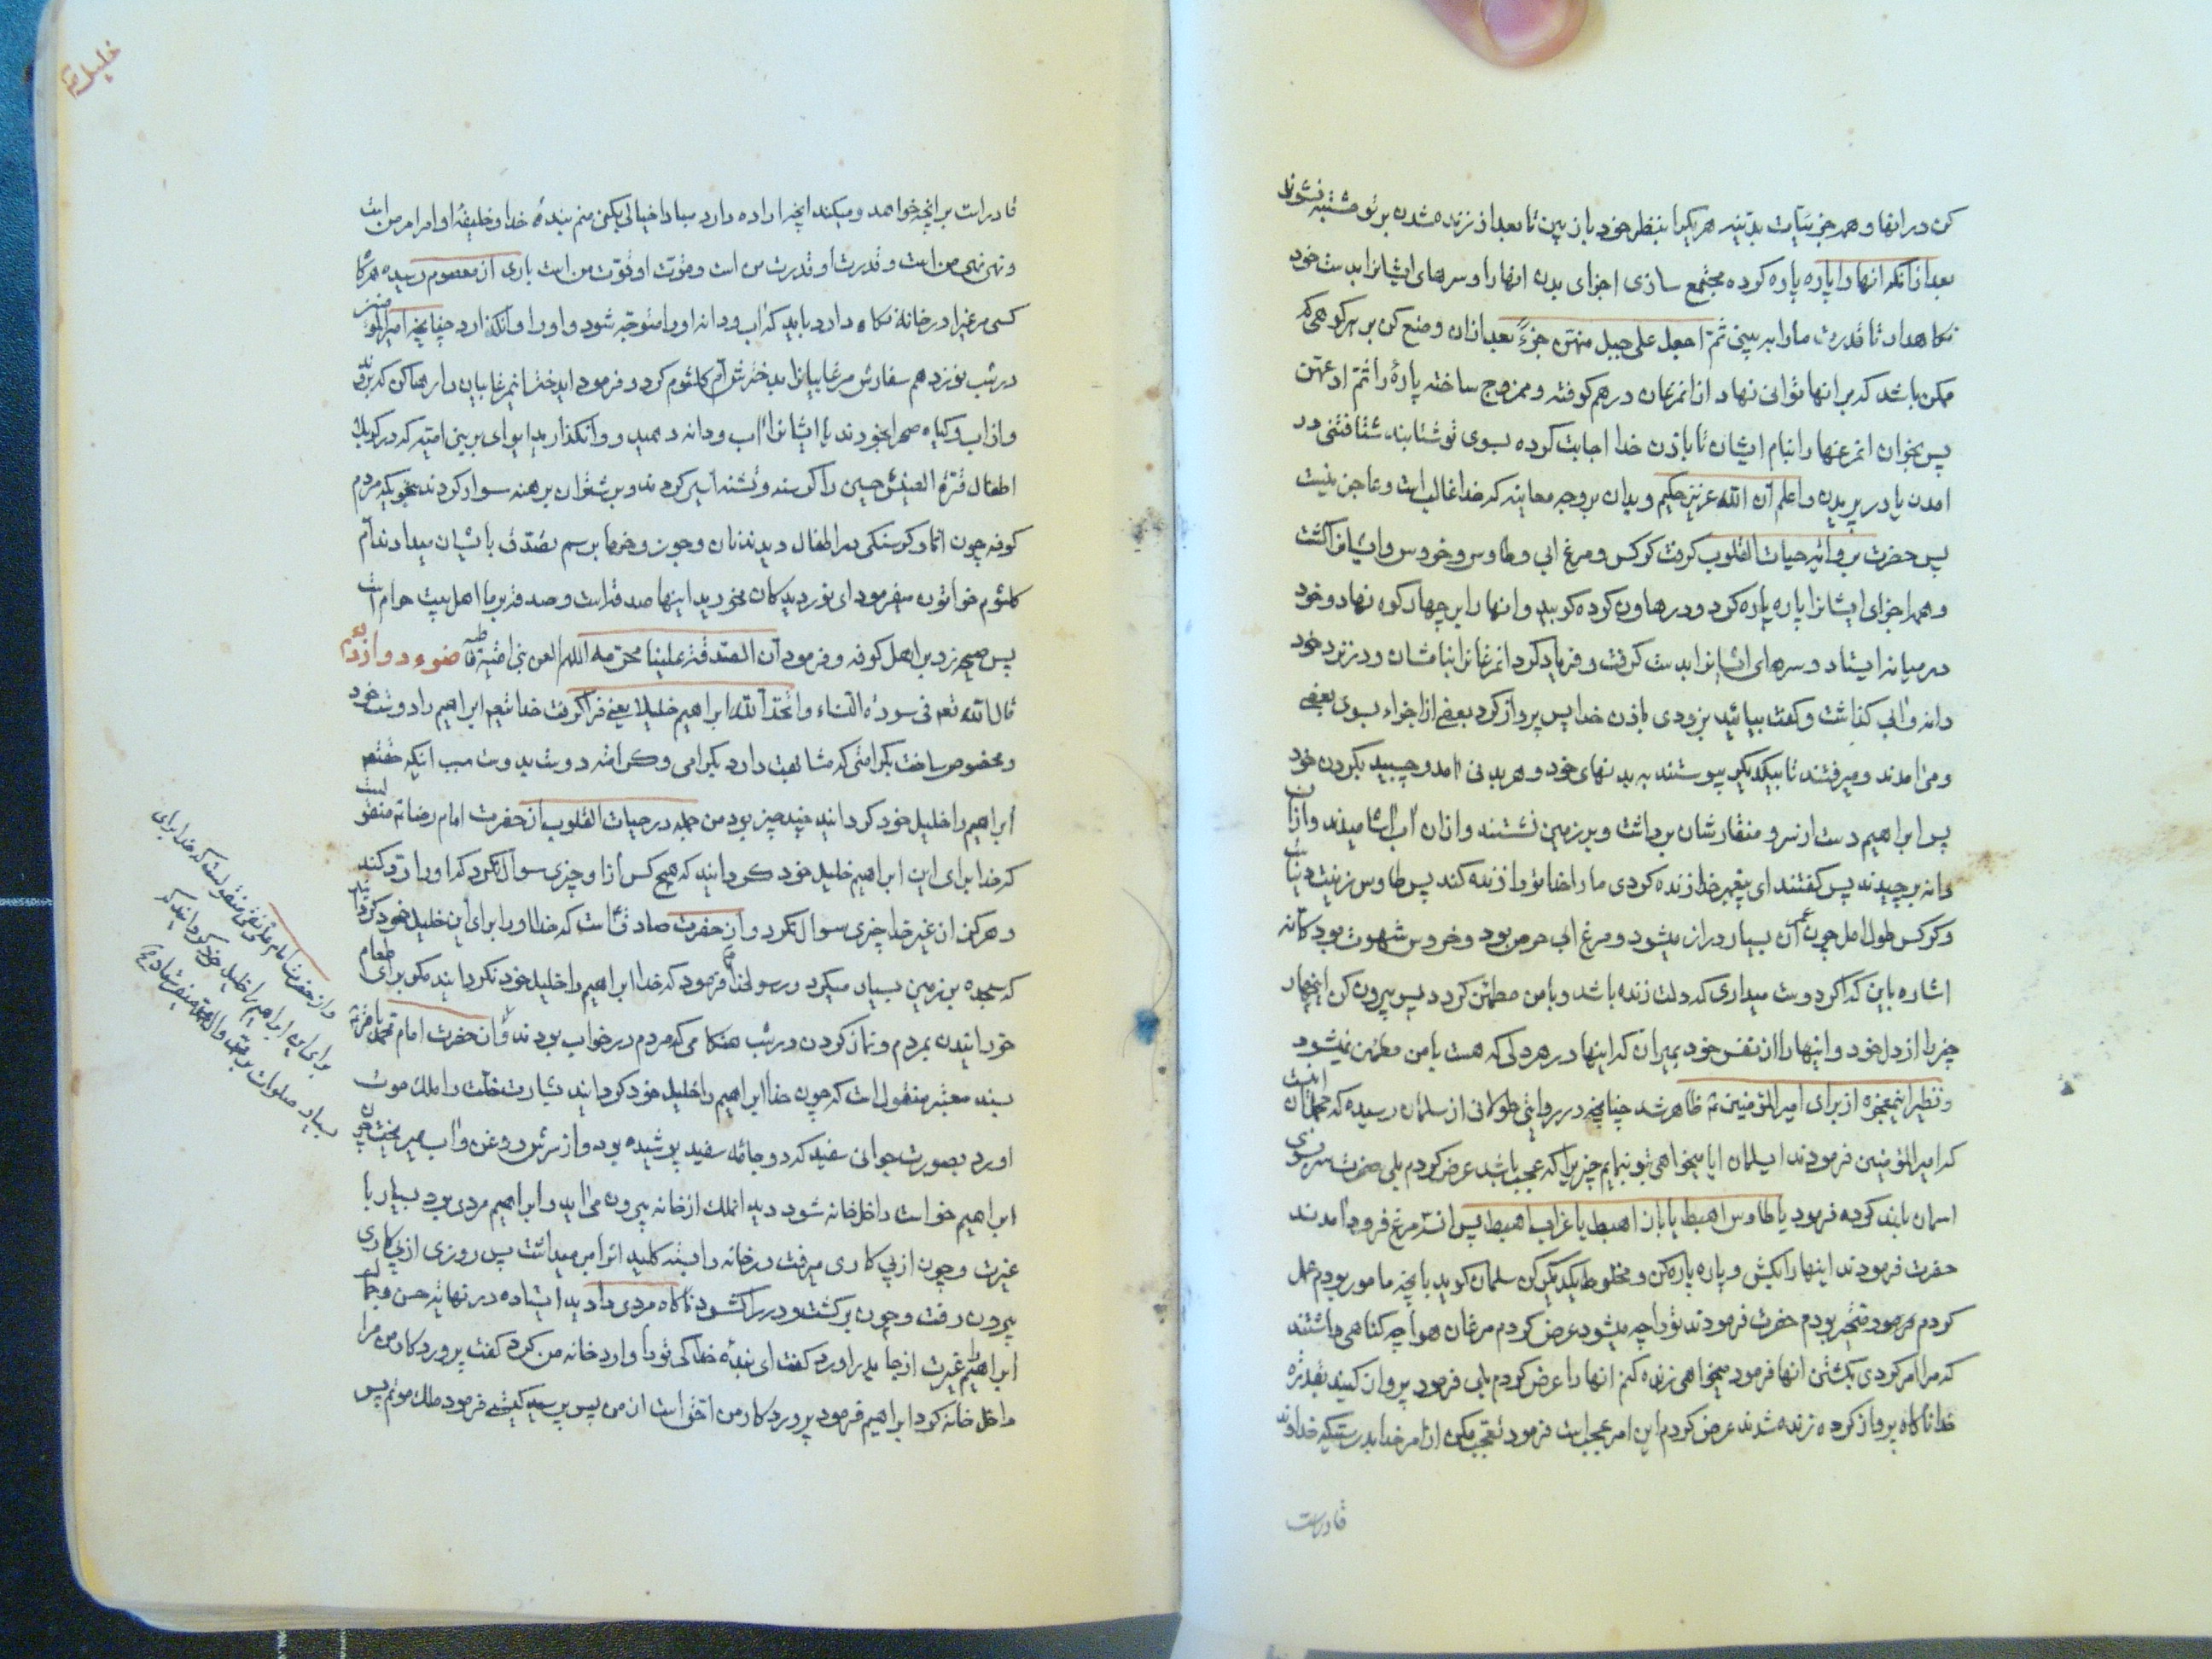 کن در انها و همه جزئیات بدنیه هر یکرا بنظر خود باز بین تا بعد از زنده شدن بر تو مشتبه نشوند
بعد از آنکه انها را پاره پاره کرده مجتمع سازی اجزای بدن انها را و سرهای ایشانرا بدست خود
نگاهدار تا قدرت ما را به بینی ثمّ اجعل علی جبل منهنّ جزءً بعد ازان وضع کن بر هر کوهی که
ممکن باشد که بر انها توانی نهاد از انمرغان درهم کوفته و ممزوج ساخته پارهٔ را ثمّ ادعهنّ
پس بخوان انمرغها را بنام ایشان تا باذن خدا اجابت کرده بسوی تو شتابند شتافتنی در
امدن یا در پریدن و اعلم انّ الله عزیز حکیم و بدان بر وجه معاینه که خدا غالب است و عاجز نیست
پس حضرت بروایة حیات القلوب گرفت کرکس و مرغ ابی و طاوس و خروس و ایشانرا کشت
و همه اجزای ایشانرا پاره پاره کرد و در هاون کرده کوبید و انها را بر چهار کوه نهاد و خود
در میانه ایستاد و سرهای ایشانرا بدست گرفت و فریاد کرد انمرغانرا بنامشان و در نزد خود
دانه و ابی گذاشت و گفت بیائید بزودی باذن خدا پس پرواز کرد بعضی از اجزاء بسوی بعضی
و می امدند و میرفتند تا بیکدیگر پیوستند به بدنهای خود و هر بدنی امد و چسبید بگردن خود
پس ابراهیم دست از سر و منقارشان برداشت و بر زمین نشستند و ازان اب اشامیدند و ازان
دانه برچیدند پس گفتند ای پیغمبر خدا زنده کردی ما را خدا تو را زنده کند پس طاوس زینت دنیاست
و کرکس طول امل چون عمر آن بسیار دراز میشود و مرغ ابی حرص بود و خروس شهوت بود گانه
اشاره باین که اگر دوست میداری که دلت زنده باشد و با من مطمئن گردد پس بیرون کن اینچهار
چیز را از دل خود و اینها را از نفس خود بمیران که اینها در هر دلی که هست با من مطمئن نمیشود
و نظیر اینمعجزه از برای امیر المؤمنین ع ظاهر شد چنانچه در روایتی طولانی از سلمان رسیده که
که امیر المؤمنین فرمودند ایسلمان ایا میخواهی بتو بنمایم چیزیرا که عجیب باشد عرض کردم بلی حضرت سر بسوی
اسمان بلند کرده فرمود یا طاوس اهبط یا باز اهبط یا غراب اهبط پس انسه مرغ فرود امدند
حضرت فرمودند اینها را بکش و پاره پاره کن و مخلوط بیکدیگر کن سلمان گوید بانچه مامور بودم عمل
کردم هرچند متحیر بودم حضرت فرمودند تو را چه میشود عرض کردم مرغان هوا چه گناهی داشتند
که مرا امر کردی بکشتن انها فرمود میخواهی زنده کنم انها را عرض کردم بلی فرمود پرواز کنید بقدرة
خدا ناگاه پرواز کرده زنده شدند عرض کردم این امر عجیب است فرمود تعجب مکن از امر خدا بدرستیکه خداوند
قادرست
خلیل
قادر است بر انچه خواهد و میکند انچه اراده دارد مبادا خیالی بکنی منم بندهٔ خدا و خلیفهٔ او امر او امر من است
و نهی نهی من است و قدرت او قدرت من است و قوّت او قوّت من است باری از معصوم رسیده هرگاه
کسی مرغیرا در خانه نگاه دارد باید که اب و دانه او را متوجّه شود و او را وانگذارد چنانچه امیر المؤمنین
در شب نوزدهم سفارش مرغابیانرا بدخترش ام کلثوم کرد و فرمود ایدختر اینمرغابیان را رها کن که بروند
و از اب و گیاه صحرا بخورند یا ایشانرا اب و دانه دهید و وانگذارید ایوای بر بنی امیه که در کربلا
اطفال قرّة العینش حسین را گرسنه و تشنه اسیر کردند و بر شتران برهنه سوار کردند بنحویکه مردم
کوفه چون اثار گرسنگی در اطفال دیدند نان و جوز و خرما برسم تصدّق بایشان میدادند ام
کلثوم خواتون میفرمود ای نور دیدگان مخورید اینها صدقه است و صدقه بر ما اهل بیت حرام است
پس صیحه زد بر اهل کوفه و فرمود انّ الصدقة علینا محرّمه اللهم العن بنی امیّة قاطبة ضوء دوازدهم
قال الله تع فی سورة النساء و اتّخذ الله ابراهیم خلیلا یعنی فرا گرفت خدا تع ابراهیم را دوست خود
و مخصوص ساخت بکرامتی که مشابهت دارد بگرامی و کرامت دوست بدوست سبب انکه حقتع
ابراهیم را خلیل خود گردانید چند چیز بود من جمله در حیات القلوب از حضرت امام رضا ع منقولست
که خدا برای این ابراهیم خلیل خود گردانید که هیچ کس از او چیزی سوال نکرد که او را ردّ کند
و هرگز از غیر خدا چیزی سوال نکرد و از حضرت صادق است که خدا او را برای این خلیل خود گردانید
که سجده بر زمین بسیار میکرد و رسولخدا ص فرمود که خدا ابراهیم را خلیل خود نگردانید مگر برای طعام
خورانیدن بمردم و نماز کردن در شب هنگامی که مردم در خواب بودند و از حضرت امام محمد باقر ع
بسند معتبر منقول است که چون خدا ابراهیم را خلیل خود گردانید بشارت خلّت را ملک موت
اورد بصورت جوانی سفید که دو جامهٔ سفید پوشیده بود و از سرش روغن و اب میریخت چون
ابراهیم خواست داخل خانه شود دید انملک از خانه بیرون می اید و ابراهیم مردی بود بسیار با
غیرت و چون از پی کاری میرفت در خانه را بسته کلید انرا بر میداشت پس روزی از پی کاری
بیرون رفت و چون برگشت و در را گشود ناگاه مردی را دید ایستاده در نهایة حسن و جمال
ابراهیم را غیرت از جا بدر اورد گفت ای بندهٔ خدا کی تو را وارد خانه من کرد گفت پروردگار من مرا
داخل خانه کرد ابراهیم فرمود پروردگار من احقّ است از من پس پرسید کیستی فرمود ملک موتم پس
و از حضرت امام علی نقی منقولست که خدا برای
برای این ابراهیم را خلیل خود گردانید که
بسیار صلوات بر محمد و ال محمد میفرستاد